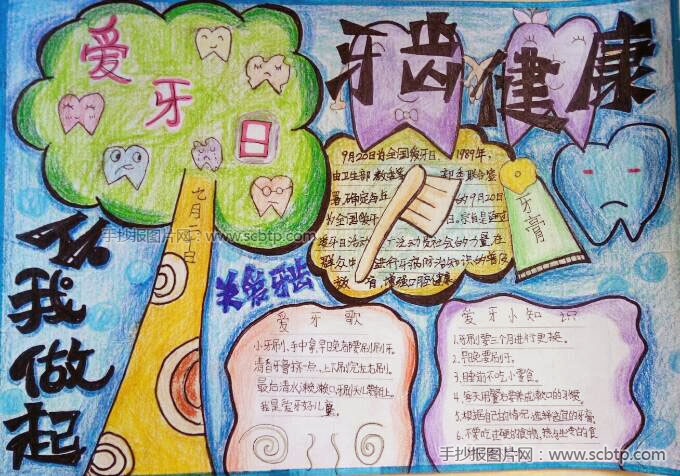 爱
牙
日
牙齿健康
从我做起
九月二十日
关爱牙齿
9月20日为全国爱牙日,1989年,
由卫生部 教委等 和委联合签
署,确定每年 的9月20日
为全国爱牙 日。宗旨是通过
爱牙日活动 广泛动员社会的力量,在
群众中 进行牙病防治知识的普及
教育,增强口腔健康
牙膏
爱牙歌
小牙刷、手中拿,早日晚都要刷刷牙。
清自牙膏挤一点、上下刷完左右刷。
最后清水漱漱口,牙刷头儿要朝上。
我是爱牙好儿童。
爱牙小知识
1.牙刷要三个月进行更换。
2.早日晚要刷牙。
3.睡前不吃小零食。
4.每天用餐后要养成漱口的习惯。
5.根据自己的情况,选择适宜的牙膏。
6.不要吃过硬的食物,热与生零的食
手抄报图片网:www.scbtp.com
手抄报图片网:www.scbtp.com